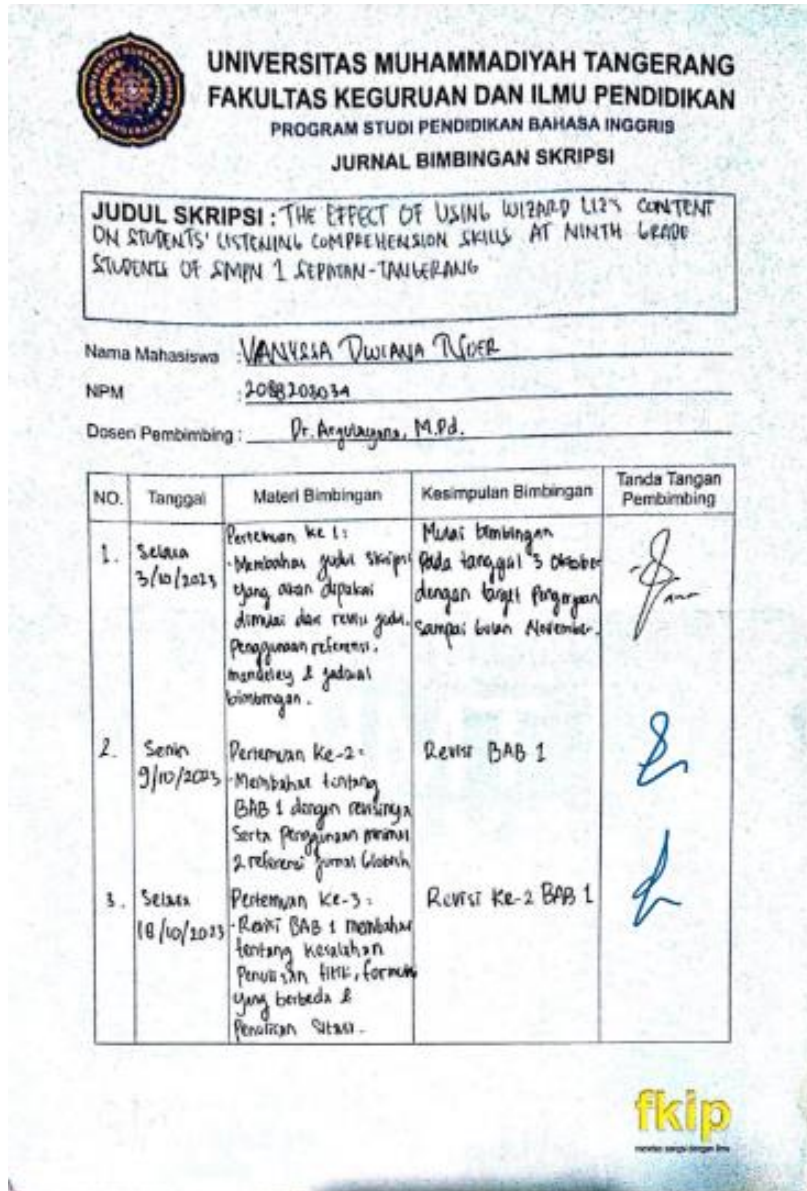 UNIVERSITAS MUHAMMADIYAH TANGERANG
FAKULTAS KEGURUAN DAN ILMU PENDIDIKAN
PROGRAM STUDI PENDIDIKAN BAHASA INGGRIS
JURNAL BIMBINGAN SKRIPSI
JUDUL SKRIPSI : THE EFFECT OF USING WIZARD LIZ'S CONTENT
ON STUDENTS' LISTENING COMPREHENSION SKILLS AT NINTH GRADE
STUDENTS OF SMPN 1 SEPATAN-TANGERANG
Nama Mahasiswa : VANYSSA DWIANA
NPM : 2088203034
Dosen Pembimbing : Dr. M.Pd.
NO. Tanggal Materi Bimbingan Kesimpulan Bimbingan Tanda Tangan Pembimbing
1. Selasa 3/10/2023
Pertemuan Ke 1:
- Membahas judul skripsi
yang akan dipakai
dimulai dari revisi judul.
Penggunaan referensi,
mendeley & jadwal
bimbingan.
Mulai bimbingan
pada tanggal 3 Oktober
dengan target pengerjaan
sampai bulan November.
2. Senin 9/10/2023
Pertemuan Ke-2:
- Membahas tentang
BAB 1 dengan revisinya
Serta penggunaan minimal
2 referensi jurnal
Revisi BAB 1
3. Selasa 18/10/2023
Pertemuan Ke-3:
- Revisi BAB 1 membahas
tentang kesalahan
Penulisan titik, format
yang berbeda &
Penulisan Sitasi.
Revisi Ke-2 BAB 1
fkip